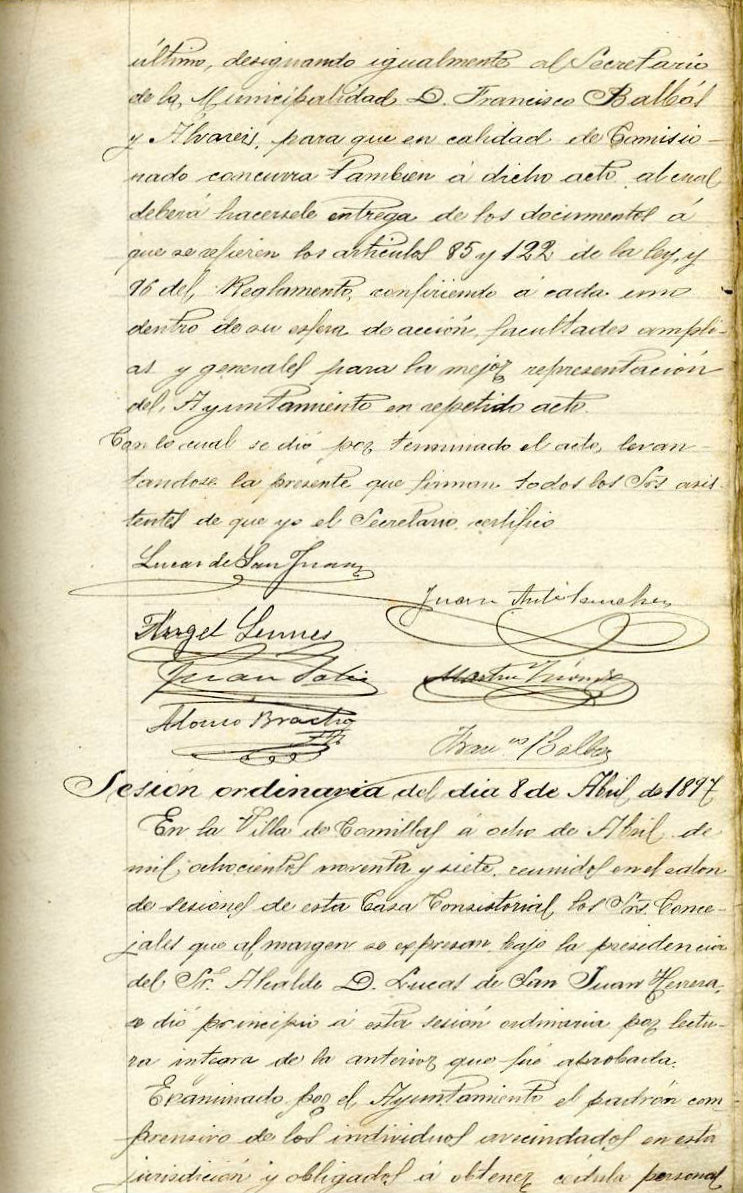 último, designando igualmente al Secretario
de la Municipalidad D. Francisco Balbás
y Álvarez, para que en calidad de Comisio-
nado concurra tambien á dicho acto, al cual
deberá hacersele entrega de los documentos á
que se refieren los articulos 85 y 122 de la ley, y
96 del Reglamento, confiriendo á cada uno
dentro de su esfera de acción, facultades ampli-
as y generales para la mejor representación
del Ayuntamiento en repetido acto
Con lo cual se dió por terminado el acto, levan-
tandose la presente que firman todos los Srs asis-
tentes de que yo el Secretario certifico
Lucas de San Juan
Juan Antº Sanchez
Angel
Juan
Martin
Alonso
Franco Balbas
Sesión ordinaria del dia 8 de Abril de 1897
En la Villa de Comillas á ocho de Abril de
mil ochocientos noventa y siete, reunidos en el salon
de sesiones de esta Casa Consistorial los Srs. Conce-
jales que al margen se expresan bajo la presidencia
del Sr. Alcalde D. Lucas de San Juan Herrera,
se dió principio á esta sesión ordinaria por lectu-
ra integra de la anterior que fué aprobada.
Examinado por el Ayuntamiento el padrón com-
prensivo de los individuos avecindados en esta
jurisdición y obligados á obtener cédula personal